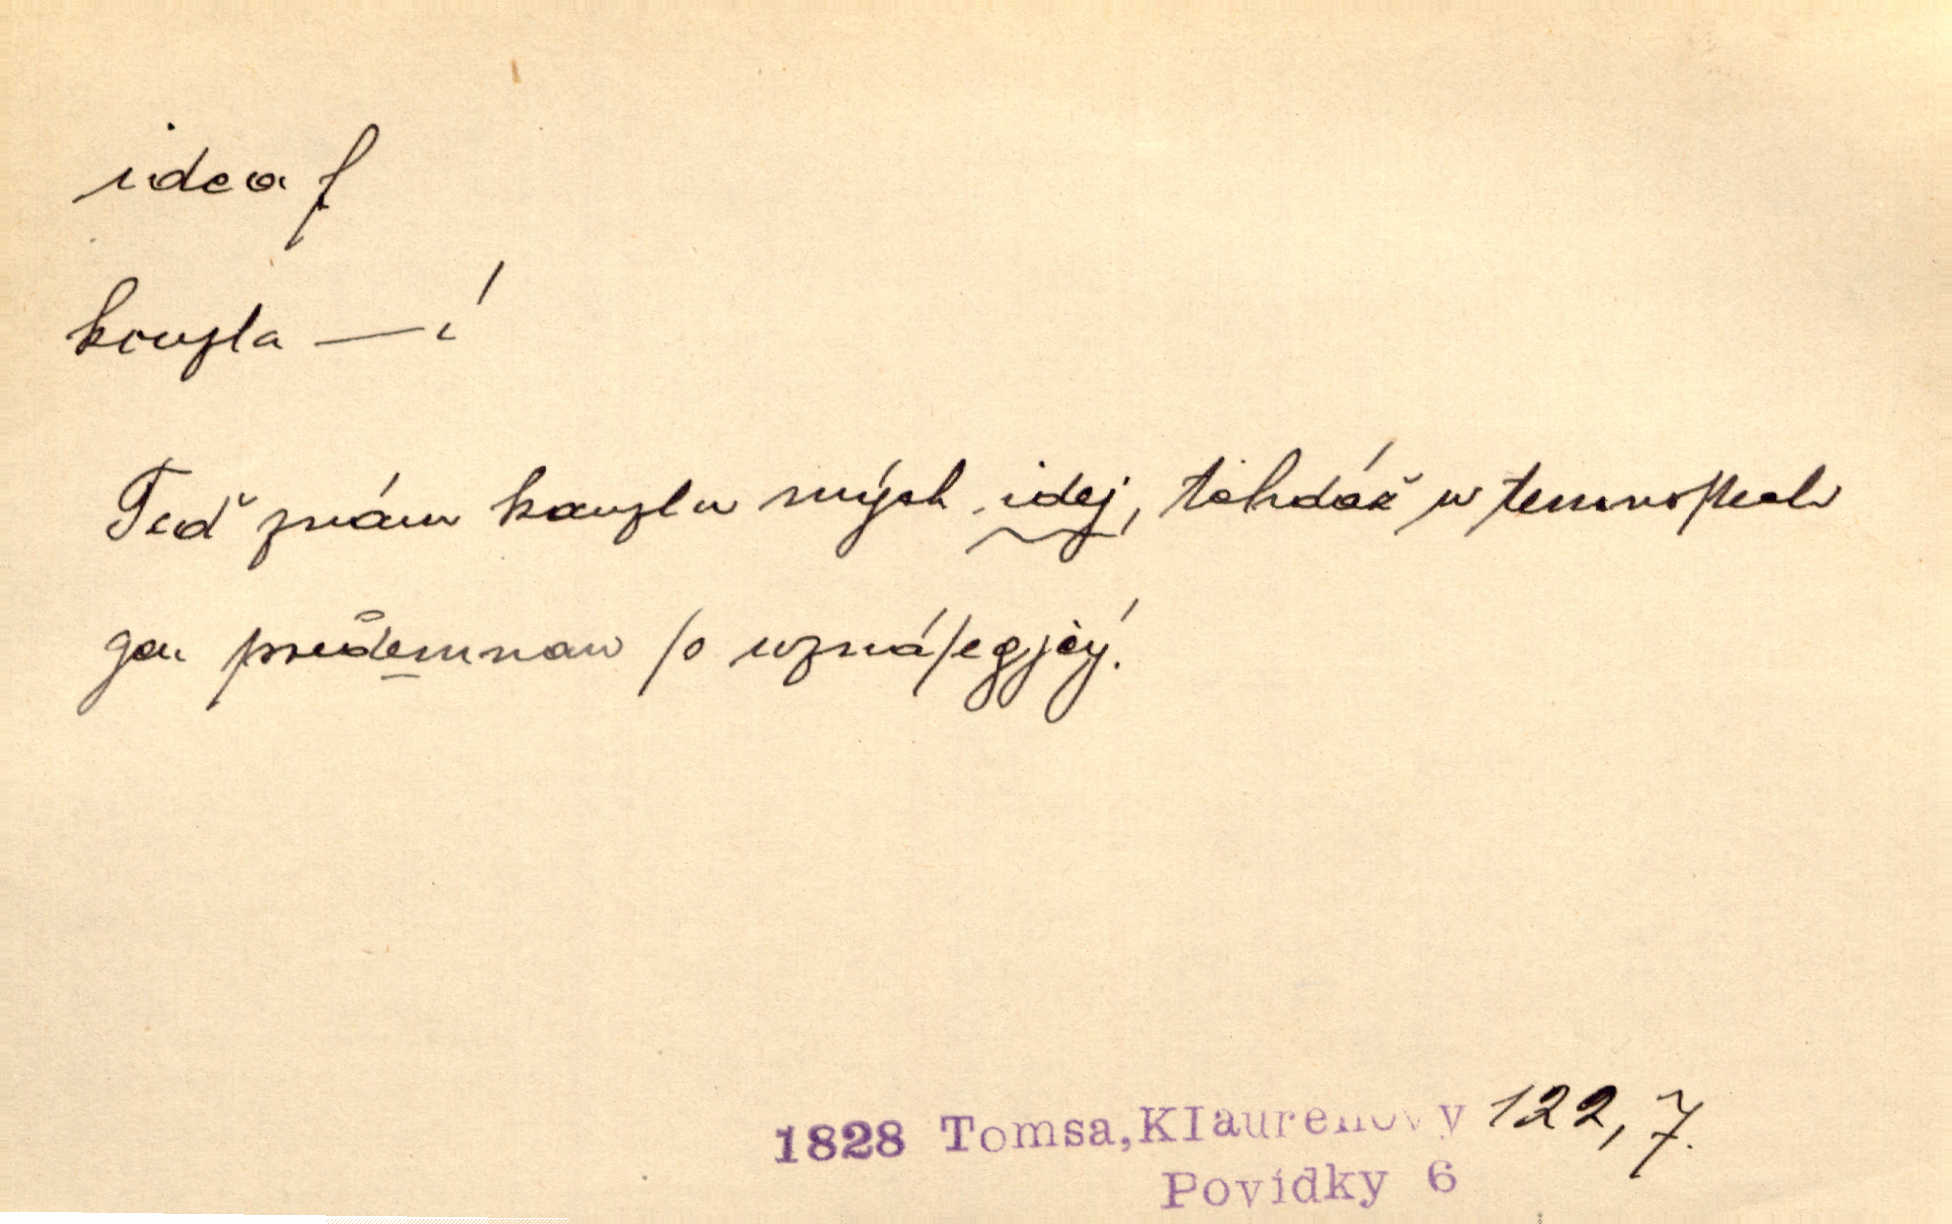 idea f
kouzla — í
Teď znám kauzlu mých idej, tehdáž w temnostech
gen předemnau se wznássegjcý.
1828 Tomsa,KIaurenovy 122,7.
Povídky 6